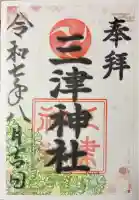 奉拝
三津神社
令和七年八月吉日